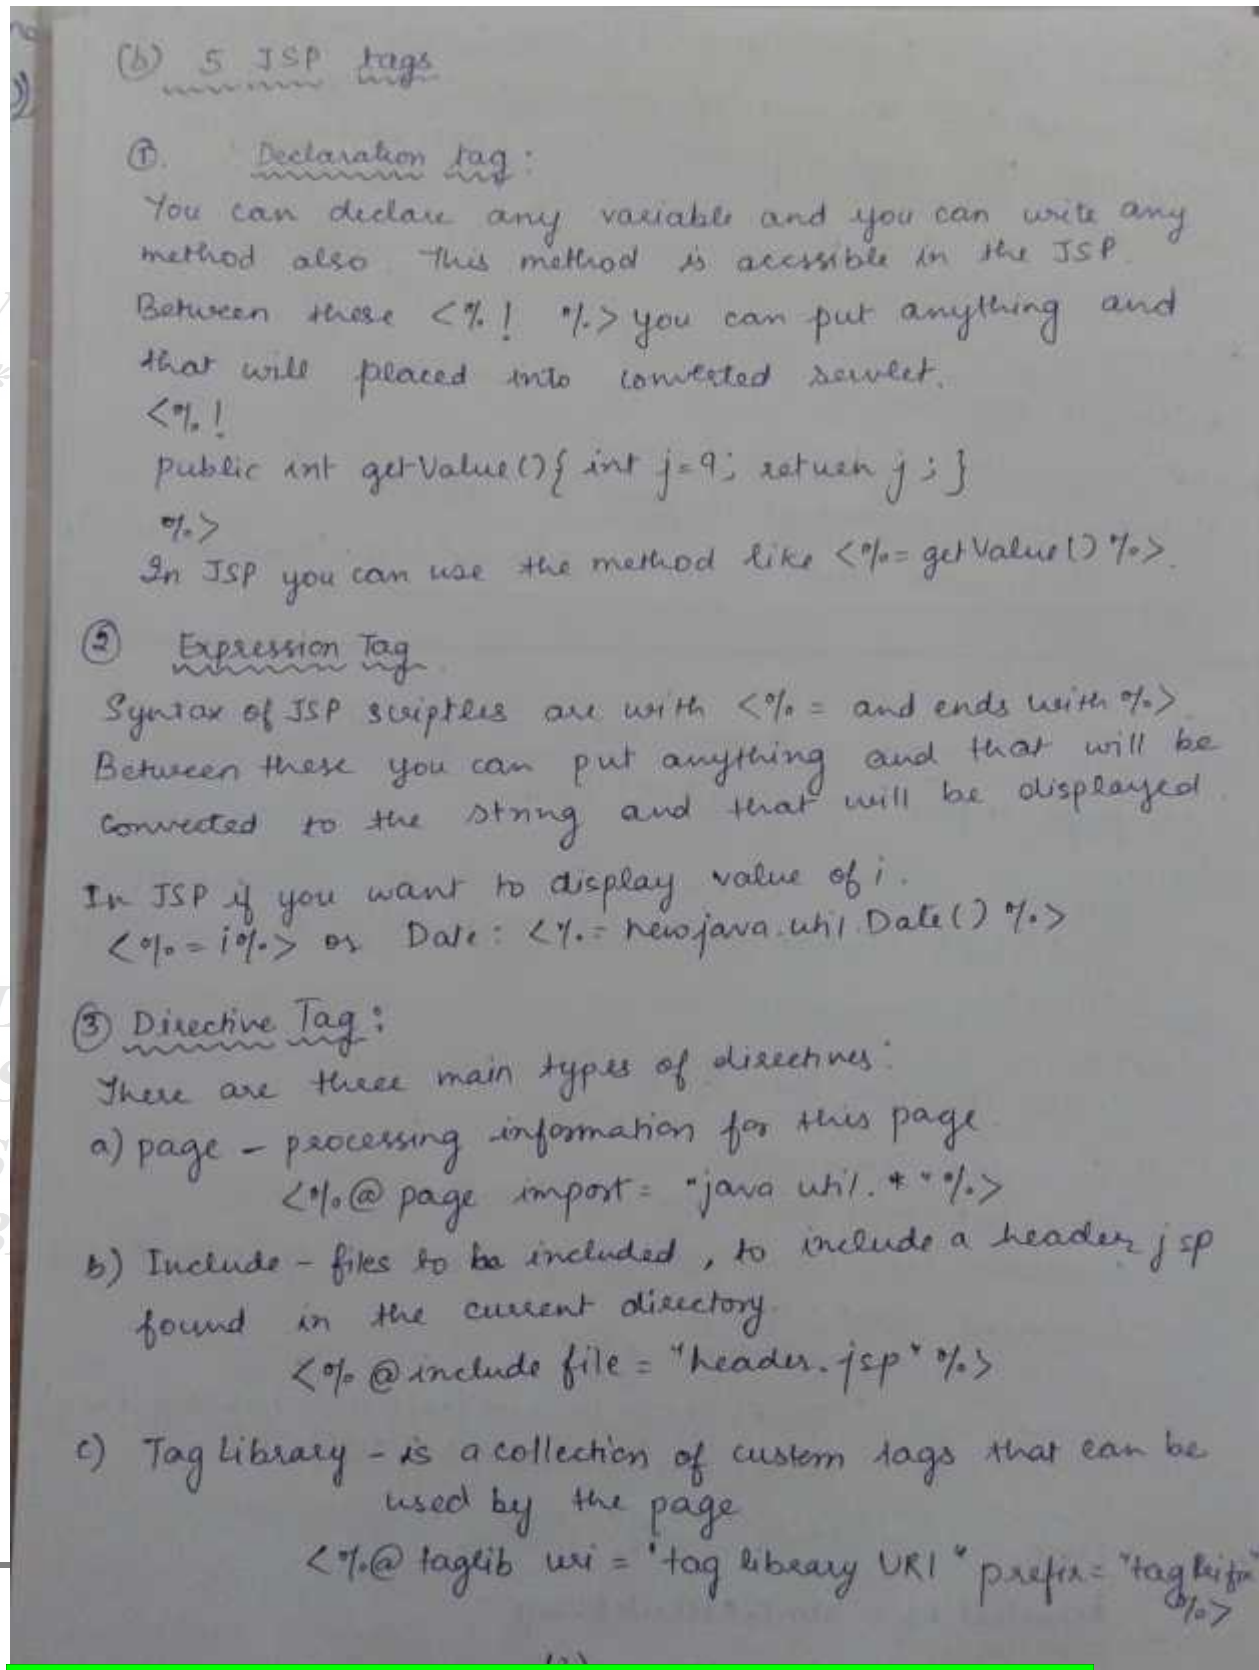 (b) 5 JSP tags
① Declaration tag :
You can declare any variable and you can write any
method also This method is accssible in the JSP.
Between these <%! %> you can put anything and
that will placed into converted servlet.
<%!
public int getValue(){ int j=9; return j ; }
%>
In JSP you can use the method like <%= getValue() %>.
② Expression Tag
Syntax of JSP scriptles are with <%= and ends with %>
Between these you can put anything and that will be
Converted to the string and that will be displayed.
In JSP if you want to display value of i.
<%= i%> or Date: <%= new java.util.Date() %>
③ Directive Tag :
There are three main types of directives:
a) page - processing information for this page.
<%@ page import= "java util. * "%>
b) Include - files to be included, to include a header jsp
found in the current directory.
<% @ include file = "header.jsp" %>
c) Tag Library - is a collection of custom tags that can be
used by the page
<%@ taglib uri = "tag library URI" prefix= "tag Prefix"
%>